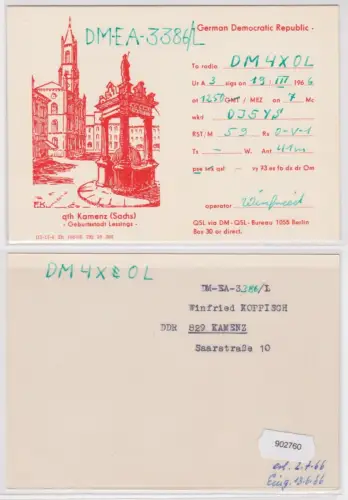 DM-EA-3386/L
German Democratic Republic -
To radio DM4XOL
Ur A 3 sigs on 19. III 1966
at 1250 GMT / MEZ on 7 Mc
wkd DJ5YS
RST/M 59 Rx 0-V-1
Tx - W. Ant 41m
pse tnx qsl - vy 73 es fb dx dr Om
operator Winfried
QSL via DM-QSL-Bureau 1058 Berlin
Box 30 or direct.
qth Kamenz (Sachs)
- Geburtsstadt Lessings -
DM4XOL
DM-EA-3386/L
Winfried KOPPISCH
DDR 829 KAMENZ
Saarstraße 10
902760
erl. 2.7.66
Eing. 13.6.66